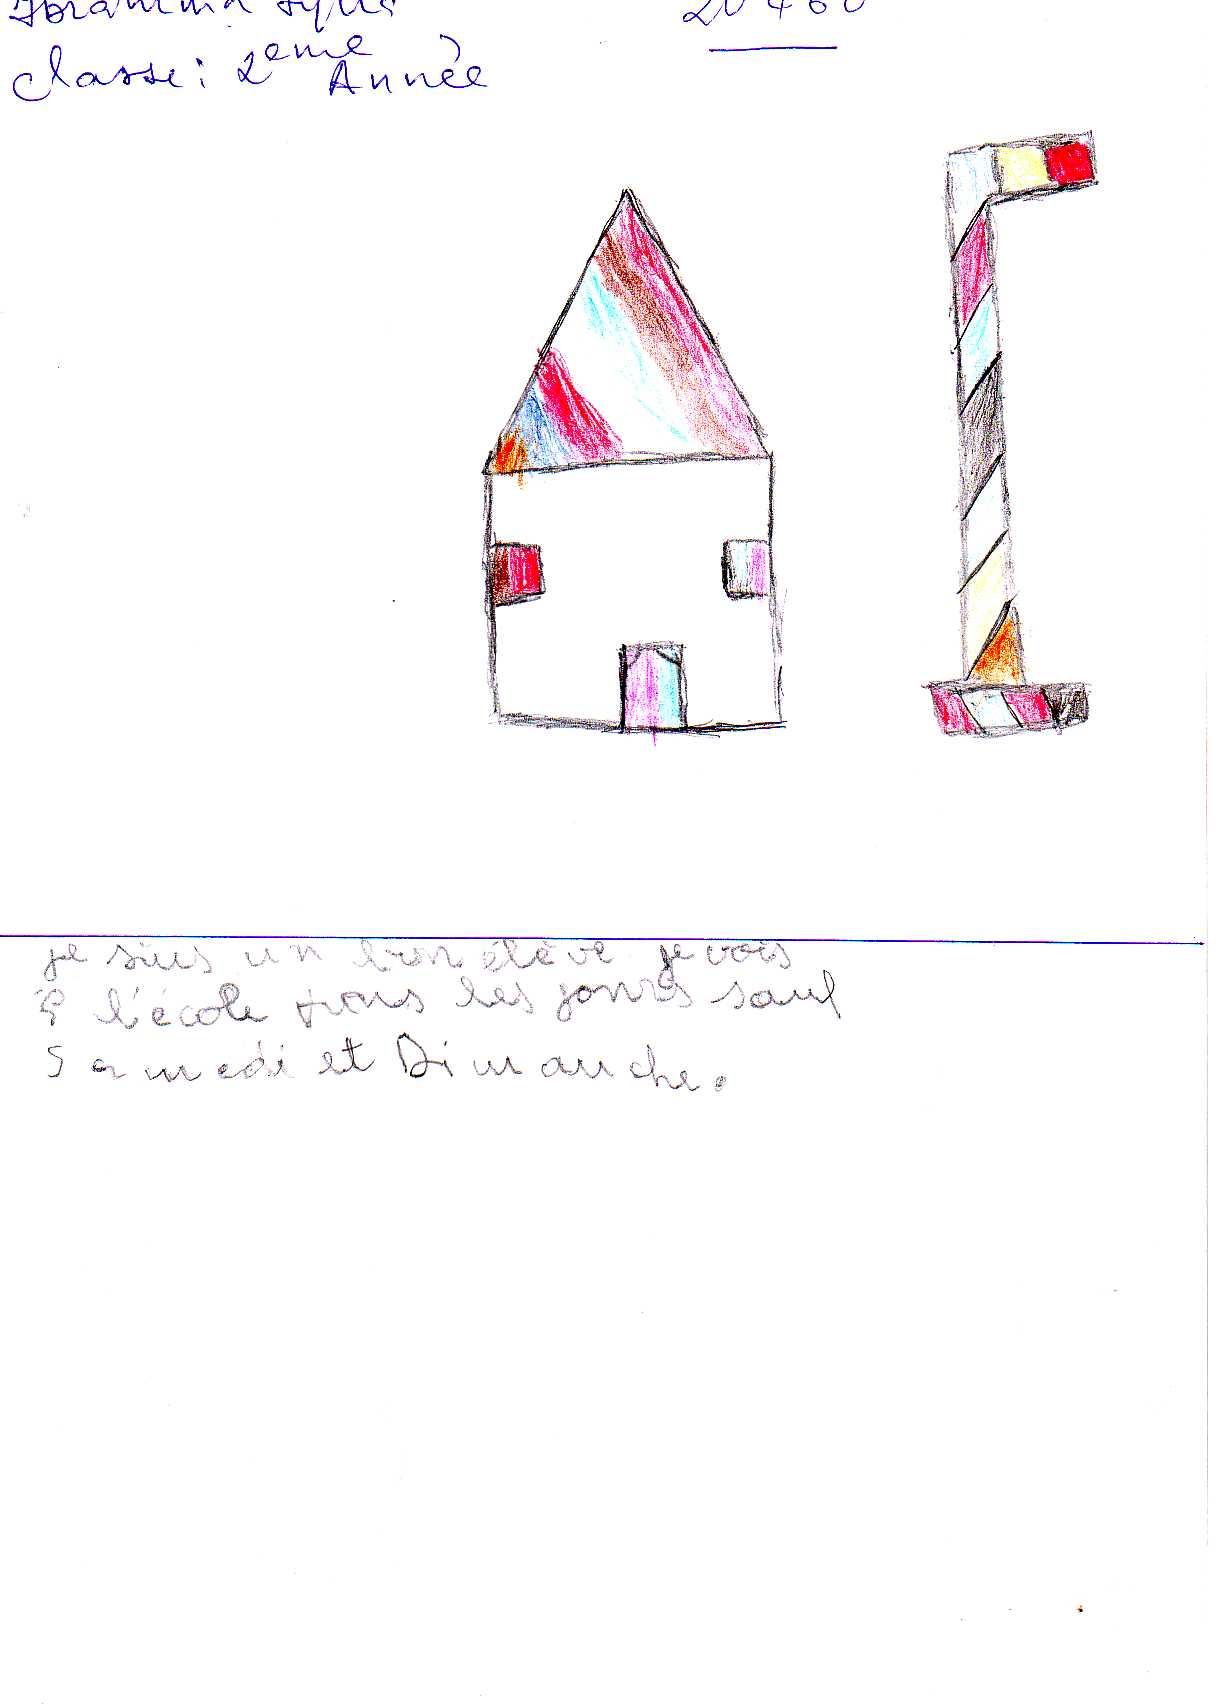 Ibrahima Sylla 20480
Classe: 2eme Année
je suis un bon élève je vois
à l'école tous les jours sauf
Samedi et Dimanche.